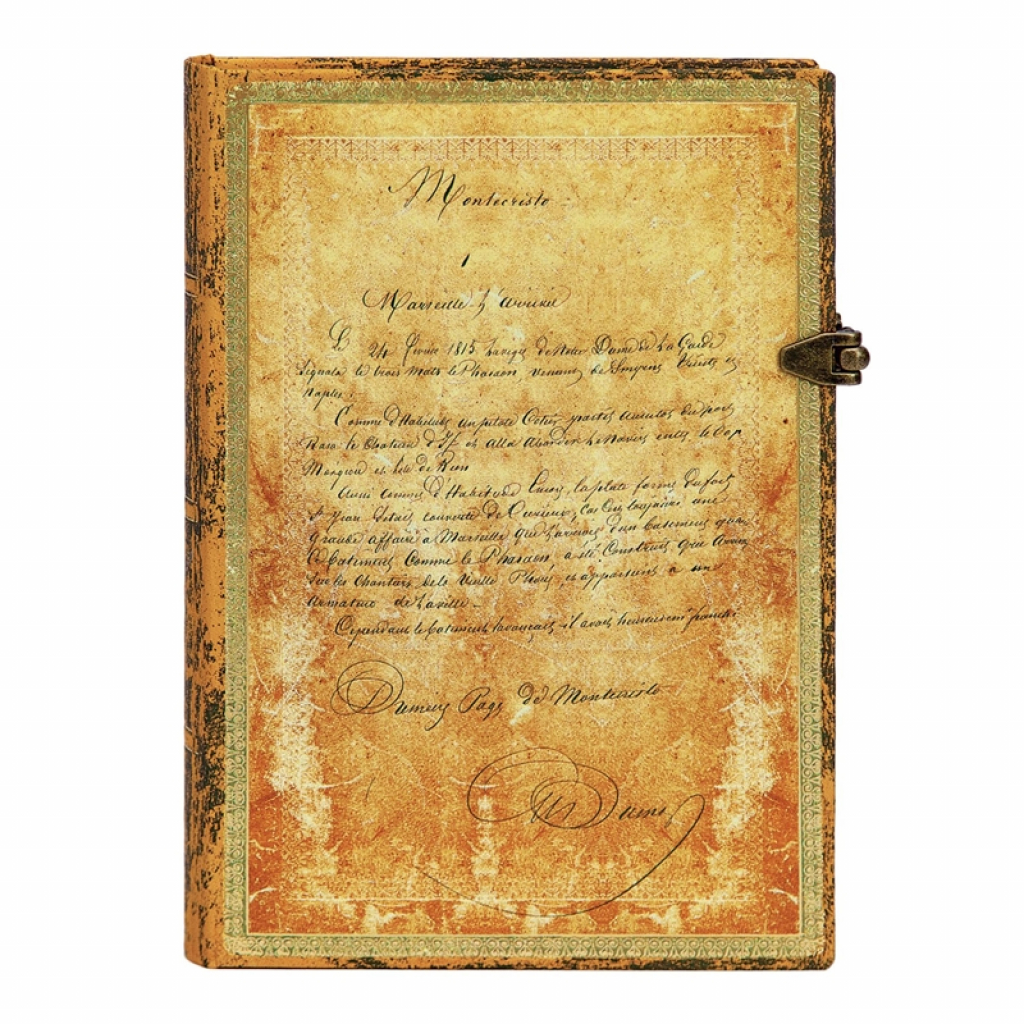 Montecristo
1
Marseille - L'arrivée
Le 24 février 1815 la vigie de Notre Dame de La Garde
Signala le trois mats le Pharaon, venant de Smyrne Trieste et
Naples.
Comme d'habitude un pilote Cotier partit aussitot du port
Rasa le Chateau d'If et alla aborder le navire entre le Cap
Morgiou et l'ile de Rion
Aussi comme d'habitude encore, la plate forme du fort
St Jean s'etait couverte de Curieux, car c'est toujours une
grande affaire à Marseille que l'arrivée d'un batiment quand
ce batiment, Comme le Pharaon, a été Construit
sur les Chantiers de la Vieille Phocée, et appartient à un
Armateur de la ville -
Cependant le batiment avançait, il avait heureusement franchi
Premiere Page de Montecristo
Alex Dumas